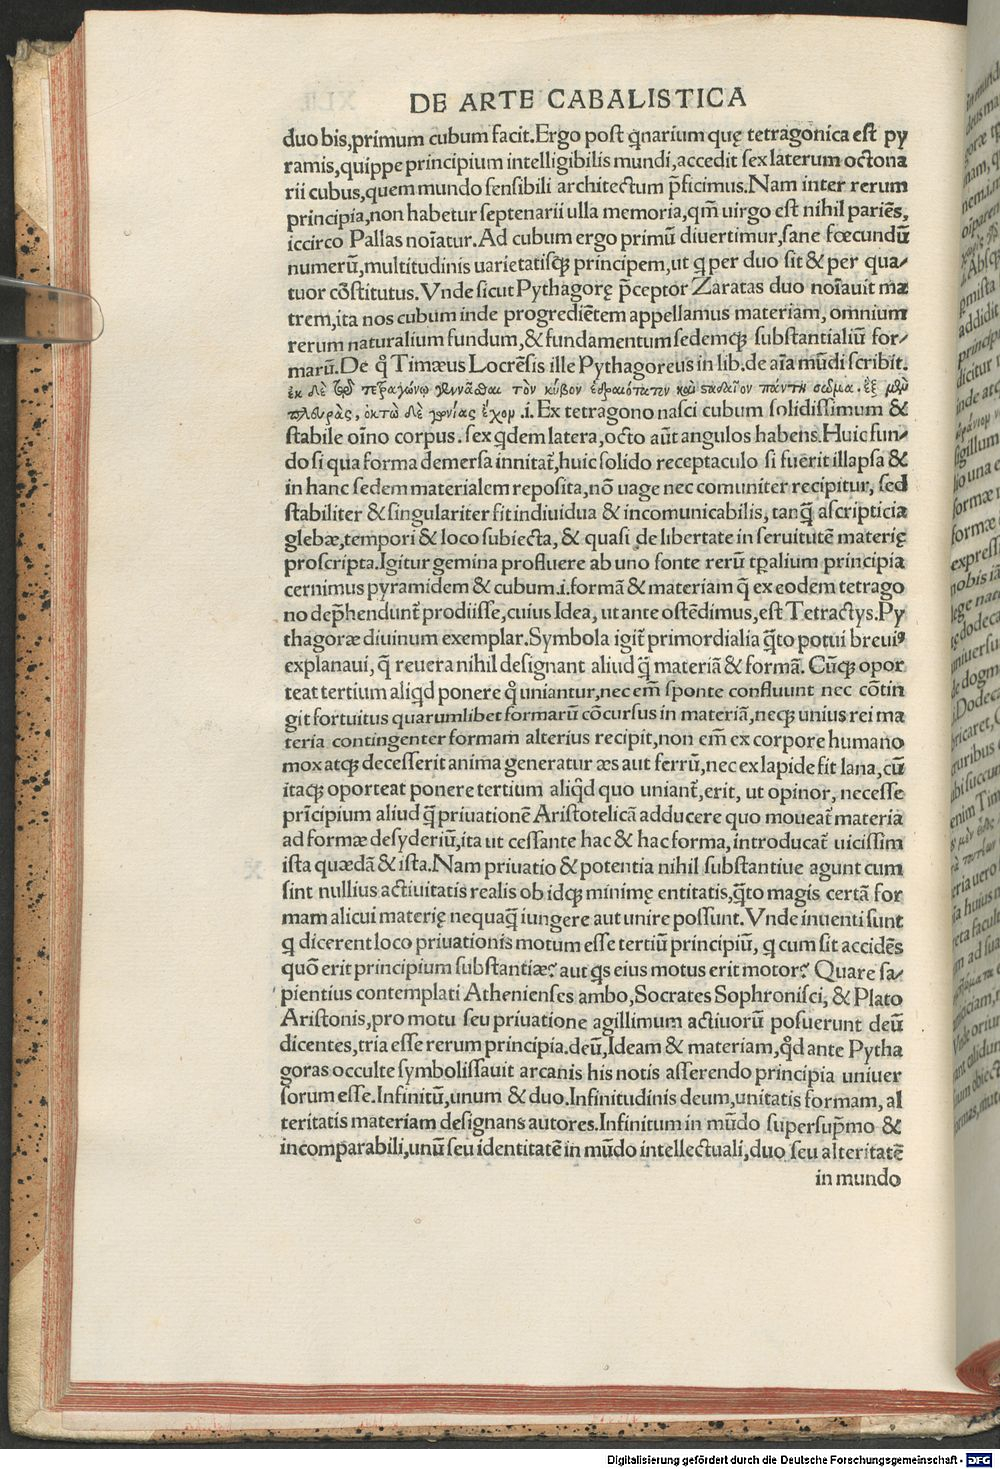 DE ARTE CABALISTICA
duo bis,primum cubum facit.Ergo post q̃narium quę tetragonica est py
ramis,quippe principium intelligibilis mundi,accedit sex laterum octona
rii cubus,quem mundo sensibili architectum p̃ficimus.Nam inter rerum
principia,non habetur septenarii ulla memoria,qm̃ uirgo est nihil pariẽs,
iccirco Pallas noĩatur.Ad cubum ergo primũ diuertimur,sane fœcundũ
numerũ,multitudinis uarietatisq; principem,ut q per duo sit & per qua/
tuor cõstitutus.Vnde sicut Pythagorę p̃ceptor Zaratas duo noĩauit ma
trem,ita nos cubum inde progrediẽtem appellamus materiam, omnium
rerum naturalium fundum,& fundamentum sedemq; substantialiũ for-
marũ.De q̊ Timæus Locrẽsis ille Pythagoreus in lib.de aĩa mũdi scribit.
ἐκ δὲ τῶ τετραγώνω γεννᾶσθαι τὸν κύβον ἑδραιότατον καὶ σταδαῖον πάντη σῶμα, ἓξ μὲν
πλευρὰς, ὀκτὼ δὲ γωνίας ἔχον .i. Ex tetragono nasci cubum solidissimum &
stabile oĩno corpus. sex q̃dem latera,octo aũt angulos habens.Huic fun/
do si qua forma demersa innitat̃,huic solido receptaculo si fuerit illapsa &
in hanc sedem materialem reposita,nõ uage nec comuniter recipitur, sed
stabiliter & singulariter fit indiuidua & incomunicabilis, tanq̃ ascripticia
glebæ,tempori & loco subiecta, & quasi de libertate in seruitutẽ materię
proscripta.Igitur gemina profluere ab uno fonte rerũ tp̃alium principia
cernimus pyramidem & cubum.i.formã & materiam q̃ ex eodem tetrago
no dep̃hendunt̃ prodiisse,cuius Idea, ut ante ostẽdimus,est Tetractys.Py
thagoræ diuinum exemplar.Symbola igit̃ primordialia q̃to potui breuiꝰ
explanaui, q̃ reuera nihil designant aliud q̃ materiã & formã. Cũq; opor
teat tertium aliq̃d ponere q̊ uniantur,nec em̃ sponte confluunt nec cõtin
git fortuitus quarumlibet formarũ cõcursus in materiã,neq; unius rei ma
teria contingenter formam alterius recipit,non em̃ ex corpore humano
mox atq; decesserit anima generatur æs aut ferrũ,nec ex lapide fit lana,cũ
itaq; oporteat ponere tertium aliq̃d quo uniant̃,erit, ut opinor, necesse
prĩcipium aliud q̃ priuationẽ Aristotelicã adducere quo moueat̃ materia
ad formæ desyderiũ,ita ut cessante hac & hac forma, introducat̃ uicissim
ista quædã & ista.Nam priuatio & potentia nihil substantiue agunt cum
sint nullius actiuitatis realis ob idq; minimę entitatis,q̃to magis certã for
mam alicui materię nequaq̃ iungere aut unire possunt.Vnde inuenti sunt
q dicerent loco priuationis motum esse tertiũ principiũ, q cum sit accidẽs
quõ erit principium substantiæ? aut q̃s eius motus erit motor? Quare sa/
pientius contemplati Athenienses ambo,Socrates Sophronisci, & Plato
Aristonis,pro motu seu priuatione agillimum actiuorũ posuerunt deũ
dicentes,tria esse rerum principia.deũ,Ideam & materiam,q̃d ante Pytha
goras occulte symbolissauit arcanis his notis asserendo principia uniuer
sorum esse.Infinitũ,unum & duo.Infinitudinis deum,unitatis formam, al
teritatis materiam designans autores.Infinitum in mũdo supersup̃mo &
incomparabili,unũ seu identitatẽ in mũdo intellectuali,duo seu alteritatẽ
in mundo
Digitalisierung gefördert durch die Deutsche Forschungsgemeinschaft - DFG